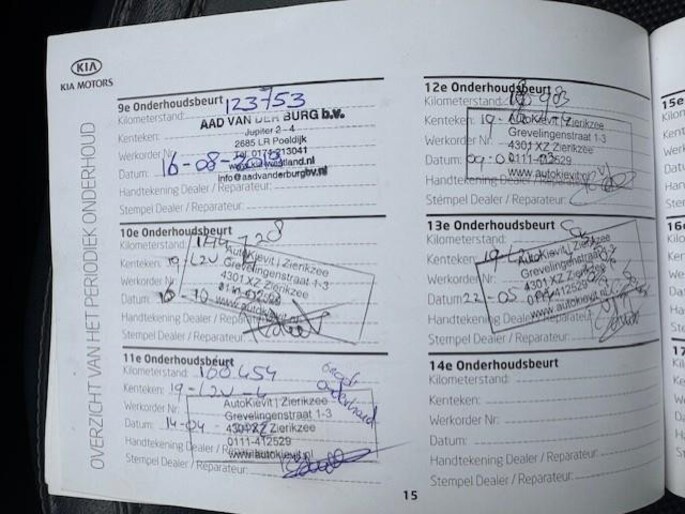 KIA
KIA MOTORS
OVERZICHT VAN HET PERIODIEK ONDERHOUD
9e Onderhoudsbeurt
Kilometerstand: 123753
Kenteken:
Werkorder Nr:
Datum: 16-08-
Handtekening Dealer / Reparateur:
Stempel Dealer / Reparateur:
AAD VAN DER BURG b.v.
Jupiter 2-4
2685 LR Poeldijk
Tel. 0174-213041
info@aadvanderburgbv.nl
10e Onderhoudsbeurt
Kilometerstand:
Kenteken: 19
Werkorder Nr:
Datum:
Handtekening Dealer / Reparateur:
Stempel Dealer / Reparateur:
AutoKievit | Zierikzee
Grevelingenstraat 1-3
4301 XZ Zierikzee
0111-412529
www.autokievit.nl
11e Onderhoudsbeurt
Kilometerstand:
Kenteken: 19-LZV-4
Werkorder Nr:
Datum: 14-04-
Handtekening Dealer / Reparateur:
Stempel Dealer / Reparateur:
AutoKievit | Zierikzee
Grevelingenstraat 1-3
4301 XZ Zierikzee
0111-412529
www.autokievit.nl
15
12e Onderhoudsbeurt
Kilometerstand:
Kenteken: 19-
Werkorder Nr:
Datum: 09-0
Handtekening Dealer / Reparateur:
Stempel Dealer / Reparateur:
AutoKievit | Zierikzee
Grevelingenstraat 1-3
4301 XZ Zierikzee
0111-412529
www.autokievit.nl
13e Onderhoudsbeurt
Kilometerstand:
Kenteken:
Werkorder Nr:
Datum: 22-05
Handtekening Dealer / Reparateur:
Stempel Dealer / Reparateur:
AutoKievit | Zierikzee
Grevelingenstraat 1-3
4301 XZ Zierikzee
0111-412529
www.autokievit.nl
14e Onderhoudsbeurt
Kilometerstand:
Kenteken:
Werkorder Nr:
Datum:
Handtekening Dealer / Reparateur:
Stempel Dealer / Reparateur:
15e
16e
17